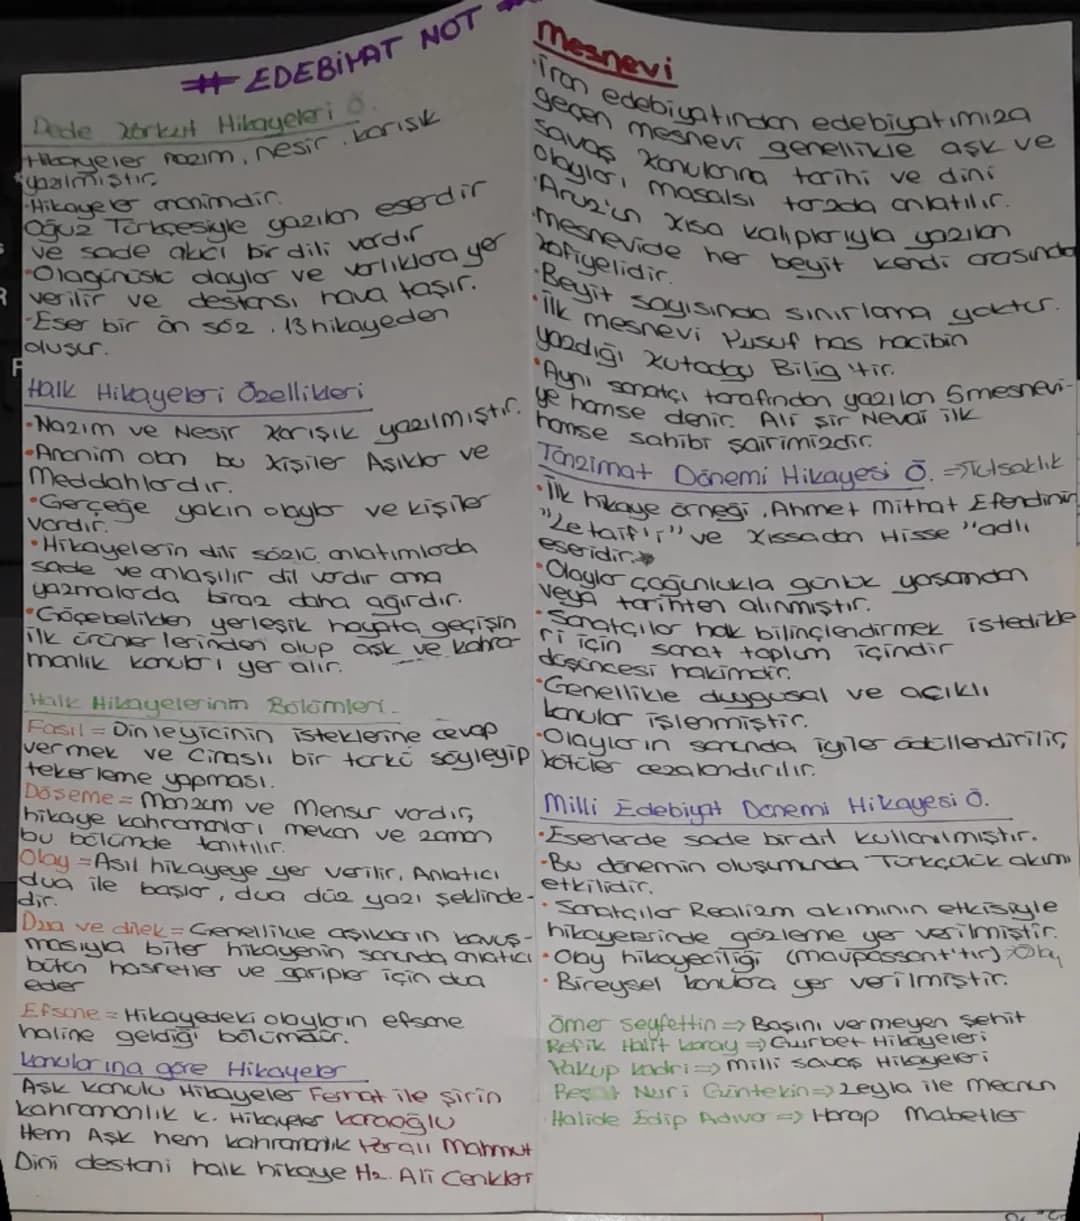 # EDEBİYAT NOT #
Dede Korkut Hikayeleri Ö.
Hikayeler nazım, nesir karışık
yazılmıştır.
Hikayeler anonimdir.
Oğuz Türkçesiyle yazılan eserdir
ve sade akıcı bir dili vardır
Olağanüstü olaylar ve varlıklara yer
verilir ve destansı hava taşır.
Eser bir ön söz, 13 hikayeden
oluşur.
Halk Hikayeleri Özellikleri
Nazım ve Nesir karışık yazılmıştır.
Anonim olan bu kişiler Aşıklar ve
Meddahlardır.
Gerçeğe yakın olaylar ve kişiler
vardır.
Hikayelerin dili sözlü anlatımlarda
sade ve anlaşılır dil vardır ama
yazmalarda biraz daha ağırdır.
Göçebelikten yerleşik hayata geçişin
ilk ürünlerinden olup aşk ve kahra-
manlık konuları yer alır.
Halk Hikayelerinin Bölümleri
Fasıl = Dinleyicinin isteklerine cevap
vermek ve Cinaslı bir türkü söyleyip
tekerleme yapması.
Döşeme = Manzum ve Mensur vardır,
hikaye kahramanları mekan ve zaman
bu bölümde tanıtılır.
Olay = Asıl hikayeye yer verilir, Anlatıcı
dua ile başlar, dua düz yazı şeklinde-
dir.
Dua ve dilek = Genellikle aşıkların kavuş-
masıyla biter hikayenin sonunda anlatıcı
bütün hasretler ve garipler için dua
eder
Efsane = Hikayedeki olayların efsane
haline geldiği bölümdür.
konularına göre Hikayeler
Aşk konulu Hikayeler Ferhat ile Şirin
kahramanlık k. Hikayeler koroğlu
Hem Aşk hem kahramanlık
Mahmut
Dini destani halk hikaye Hz. Ali Cenkleri
Mesnevi
İran edebiyatından edebiyatımıza
geçen mesnevi genellikle aşk ve
savaş konularına tarihi ve dini
olayları, masalsı tarzda anlatılır.
Aruz'un kısa kalıplarıyla yazılan
mesnevide her beyit kendi arasında
kafiyelidir.
Beyit sayısında sınırlama yoktur.
İlk mesnevi Yusuf has hacibin
yazdığı Kutadgu Bilig'tir.
Aynı sanatçı tarafından yazılan 5 mesnevi-
ye hamse denir. Ali Şir Nevai ilk
hamse sahibi şairimizdir.
Tanzimat Dönemi Hikayesi Ö. => Tutsaklık
İlk hikaye örneği, Ahmet Mithat Efendinin
"Letaif'i" ve Kıssadan Hisse" adlı
eseridir.
Olaylar çoğunlukla günlük yaşamdan
veya tarihten alınmıştır.
Sanatçılar halk bilinçlendirmek istedikle
ri için sanat toplum içindir
düşüncesi hakimdir.
Genellikle duygusal ve acıklı
konular işlenmiştir.
Olayların sonunda iyiler ödüllendirilir,
kötüler cezalandırılır.
Milli Edebiyat Dönemi Hikayesi Ö.
Eserlerde sade bir dil kullanılmıştır.
Bu dönemin oluşumunda Türkçülük akımı
etkilidir.
Sanatçılar Realizm akımının etkisiyle
hikayelerinde gözleme yer verilmiştir.
Olay hikayeciliği (Maupassant'tır) Olay
Bireysel konulara yer verilmiştir.
Ömer Seyfettin => Başını vermeyen şehit
Refik Halit karay => Gurbet Hikayeleri
Yakup kadri => Milli savaş Hikayeleri
Reşat Nuri Güntekin => Leyla ile mecnun
Halide Edip Adıvar => Harap Mabetler